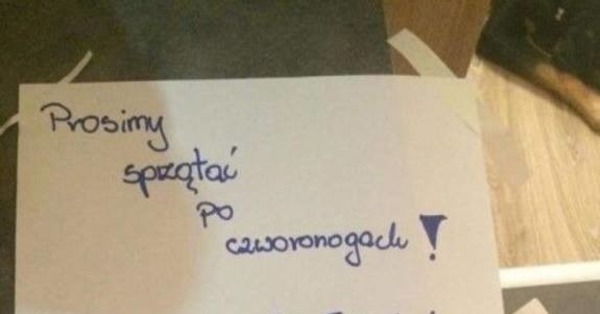 Prosimy
sprzątać
po
czworonogach!